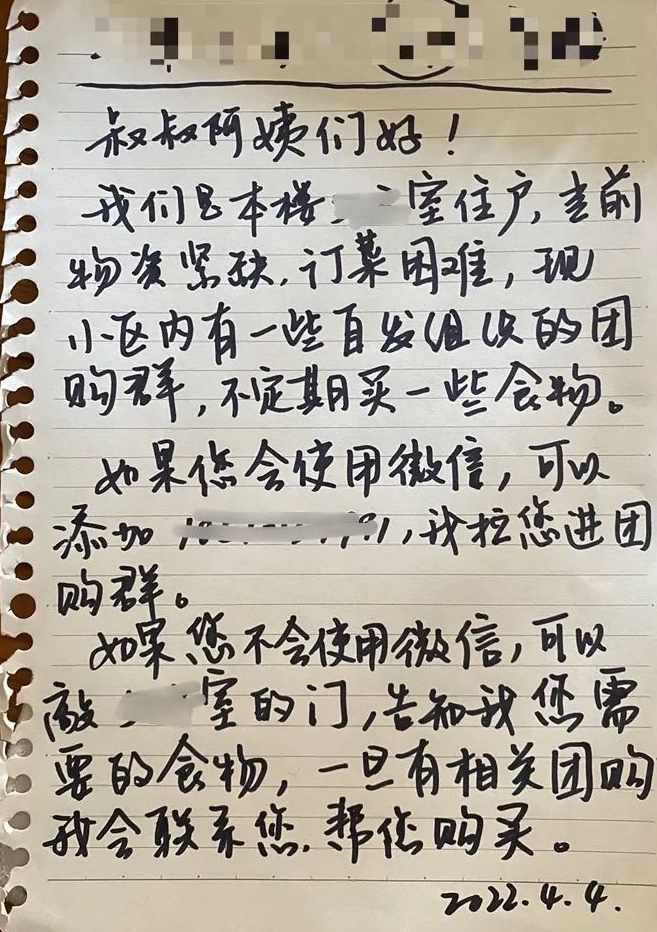 叔叔阿姨们好！
我们是本楼室住户,当前
物资紧缺.订菜困难，现
小区内有一些自发组织的团
购群，不定期买一些食物。
如果您会使用微信，可以
添加,我拉您进团
购群。
如果您不会使用微信，可以
敲室的门，告知我您需
要的食物，一旦有相关团购
我会联系您.帮您购买。
2022.4.4.